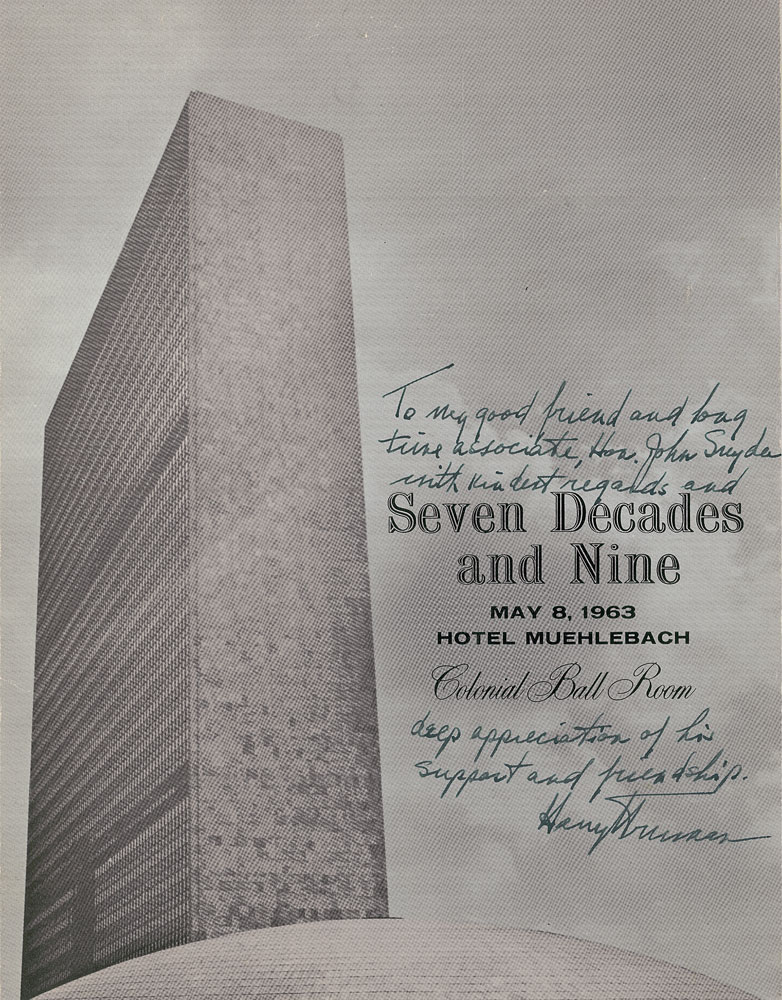 To my good friend and long
time associate, Hon. John Snyder
with kindest regards and
Seven Decades
and Nine
MAY 8, 1963
HOTEL MUEHLEBACH
Colonial Ball Room
deep appreciation of his
support and friendship.
Harry Truman